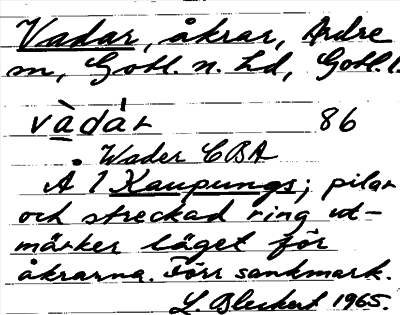 Vadar, åkrar, Ardre
sn, Gotl. n. hd, Gotl. l.
vàdár 86
. Wader CBA
A 1 Kaupungs; pilar
och streckad ring ut-
märker läget för
åkrarna. Förr sankmark.
L. Bleckert 1965.